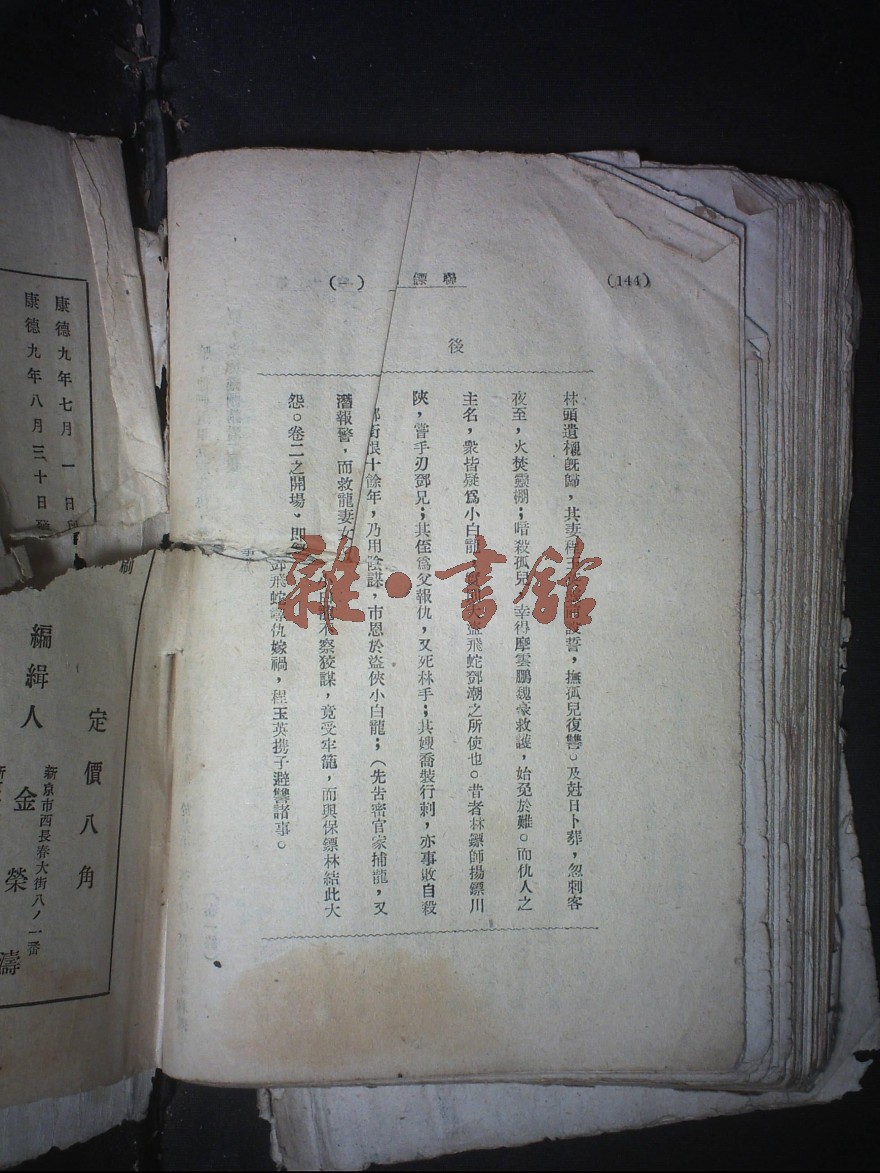 (144)
聯鏢
(一)
後
林頭遺櫬旣歸，其妻程玉誓，撫孤兒復讐。及尅日卜葬，忽刺客
夜至，火焚靈棚；暗殺孤兒，幸得摩雲鵬魏豪救護，始免於難。而仇人之
主名，衆皆疑爲小白龍，盜飛蛇鄧潮之所使也。昔者林鏢師揚鏢川
陝，嘗手刃鄧兄；其侄爲父報仇，又死林手；其嫂喬裝行刺，亦事敗自殺
銜恨十餘年，乃用陰謀，市恩於盜俠小白龍；(先告密官家捕龍，又
潛報警，而救龍妻女不察狡謀，竟受牢籠，而與保鏢林結此大
怨。卷二之開場，即鄧飛蛇尋仇嫁禍，程玉英携子避讐諸事。
康德九年七月一日印刷
康德九年八月三十日發
定價八角
編緝人 金榮濤
新京市西長春大街八ノ一番
雜·書舘